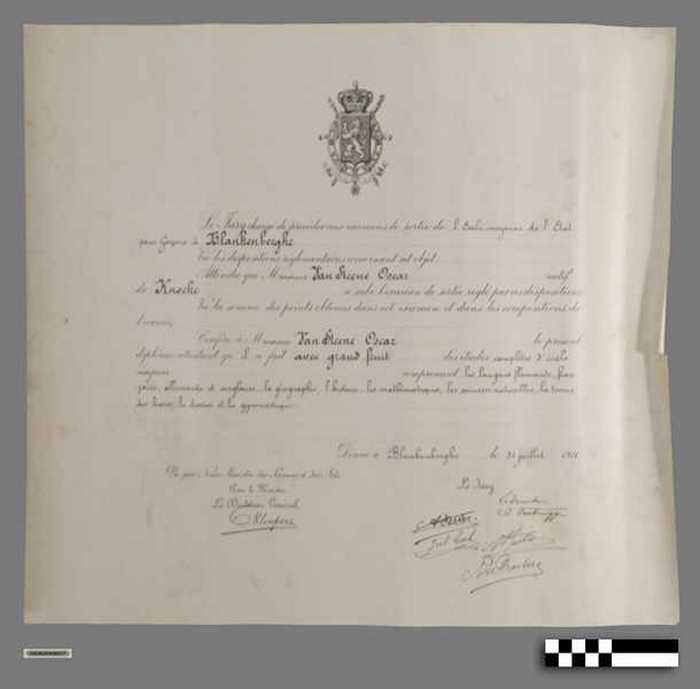 Le Jury chargé de procéder aux examens de sortie de l'École moyenne de l'État
pour Garçons à Blankenberghe
Vu les dispositions réglementaires concernant cet objet,
Attendu que Monsieur Van Steene Oscar natif
de Knocke a subi l'examen de sortie réglé par ces dispositions
Vu la somme des points obtenus dans cet examen et dans les compositions de
Confère à Monsieur Van Steene Oscar le présent
diplôme attestant qu'il a fait avec grand fruit des études complètes d'école
moyenne comprenant les langues flamande, fran
çaise, allemande et anglaise, la géographie, l'histoire, les mathématiques, les sciences naturelles, la tenue
des livres, le dessin et la gymnastique.
Donné à Blankenberghe le 31 juillet
Vu par Nous Ministre des Sciences et des Arts
Pour le Ministre
Le Directeur Général,
Le Jury